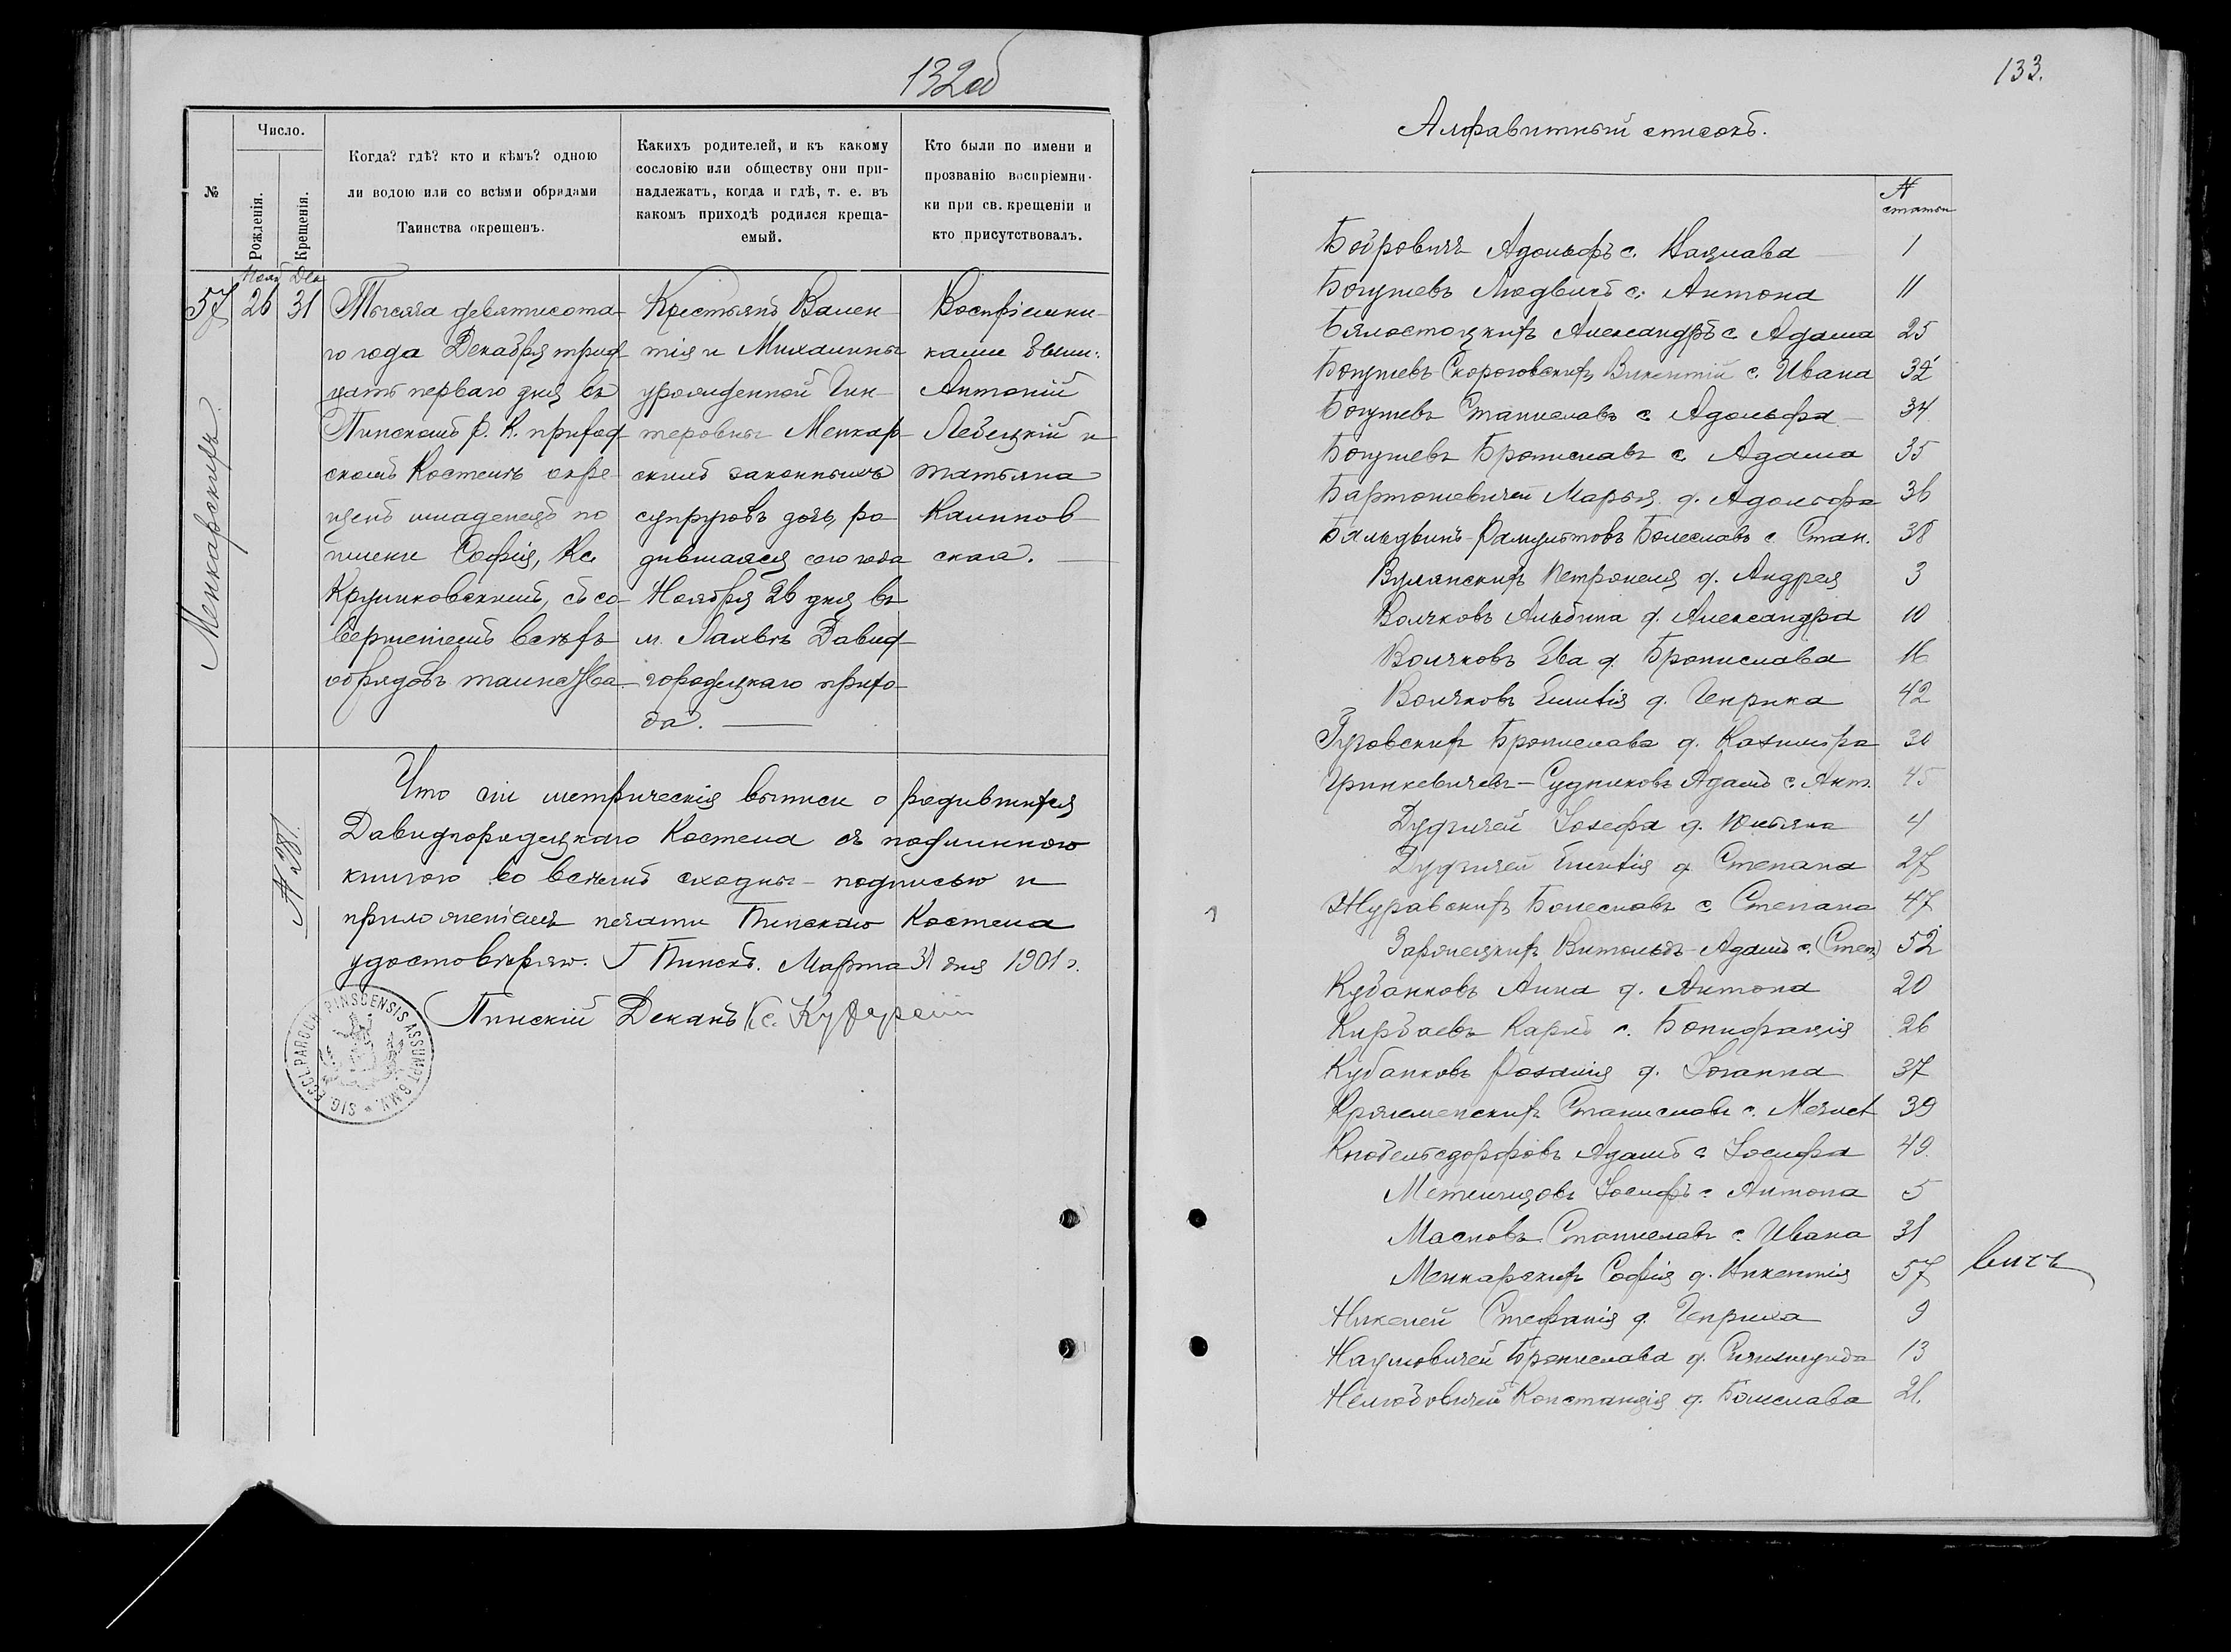 132об
№
Число.
Рожденія.
Крещенія.
Когда? гдѣ? кто и кѣмъ? одною
ли водою или со всѣми обрядами
Таинства окрещенъ.
Какихъ родителей, и къ какому
сословію или обществу они при-
надлежатъ, когда и гдѣ, т. е. въ
какомъ приходѣ родился креща-
емый.
Кто были по имени и
прозванію воспріемни-
ки при св. крещеніи и
кто присутствовалъ.
Нояб Дек
57 26 31
Менкарскихъ
Тысяча девятисота-
го года Декабря трид
цать перваго дня въ
Пинскомъ Р. К. приход
скомъ Костелѣ окре-
щенъ младенецъ по
имени Софія, Кс.
Крушковскимъ, съ со-
вершеніемъ всѣхъ
обрядовъ таинства.
Крестьянъ Вамен-
тія и Михалины
урожденной Гин-
теровны Менкар-
скихъ законныхъ
супруговъ дочь, ро
дившаяся сего года
Ноября 26 дня въ
м. Лахвѣ Давид-
городецкаго прихо-
да.
Воспріемни-
ками были:
Антоній
Лебецкій и
Татьяна
Калинов-
ская.
№ 281.
Что сіи метрическія выписи о родившихся
Давидгородецкаго Костела съ подлинною
книгою во всемъ сходны - подписью и
приложеніемъ печати Пинскаго Костела
удостовѣряю. Г Пинскъ. Марта 31 дня 1901 г.
Пинскій Деканъ Кс.
SIG. ECCL. PAROCH. PINSCENSIS ASSUMPT. B.M.V.
133.
Алфавитный списокъ.
№
статьи
Бобровичъ Адольфъ с. Вацлава 1
Богушевъ Людвигъ с. Антона 11
Бялостоцкихъ Александръ с Адама 25
Богушевъ-Скороговскихъ Викентій с. Ивана 32
Богушевъ Станиславъ с Адольфа 34
Богушевъ Брониславъ с. Адама 35
Бартошевичей Марья д. Адольфа 36
Бальдвинъ-Рамультовъ Болеславъ с Стан. 38
Вулянскихъ Петронеля д. Андрея 3
Волчковъ Альбина д. Александра 10
Волчковъ Ева д. Бронислава 16
Волчковъ Емилія д. Генрика 42
Гуровскихъ Бронислава д. Казимира 30
Гринкевичевъ-Судниковъ Адамъ с. Ант. 45
Дудичей Іозефа д. Юльяна 4
Дудичей Емилія д Степана 27
Журавскихъ Болеславъ с Степана 47
Заржецкихъ Витольдъ-Адамъ с. (Степ) 52
Кубанковъ Анна д. Антона 20
Кирбаевъ Карлъ с. Бонифація 26
Кубанковъ Розалія д. Іоганна 37
Кржеменскихъ Станиславъ с. Мечис 39
Кнобельсдорфовъ Адамъ с Іосифа 49
Метлицовъ Іосифъ с Антона 5
Масновъ Станиславъ с. Ивана 31
Менкарскихъ Софія д. Викентія 57
Никелей Стефанія д. Генриха 9
Наумовичей Бронислава д. Сигизмунда 13
Нелюбовичей Констанція д. Болеслава 21.